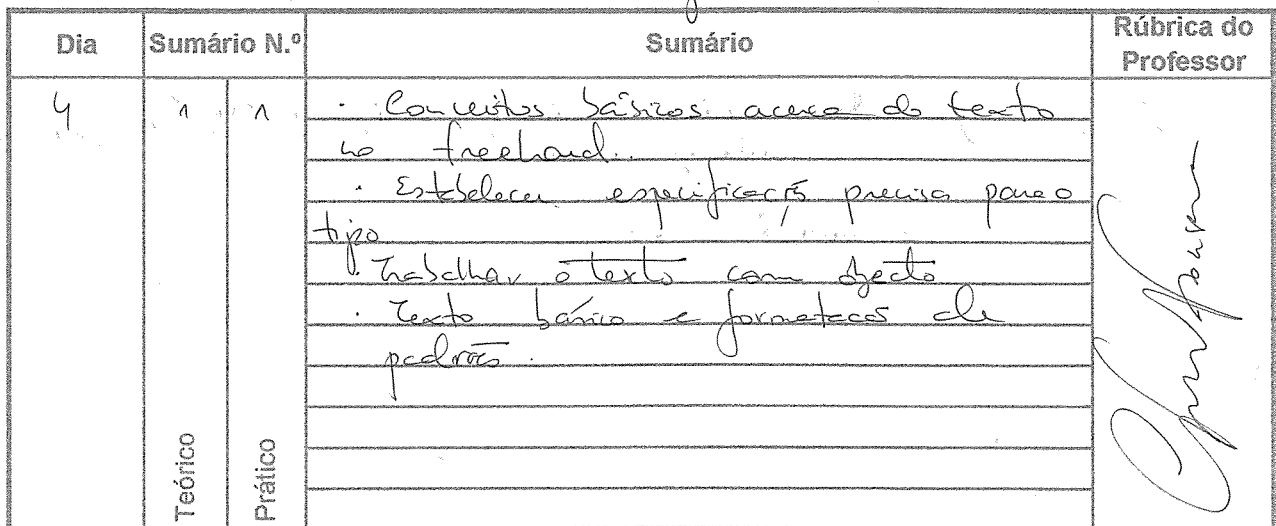 Dia Sumário N.º Sumário Rúbrica do
Professor
4 1 1 · Conceitos básicos acerca do texto
no freehand.
· Estabelecer especificação precisa para o
tipo
· Trabalhar o texto com objecto
· Texto básico e formatação de
padrões.
Teórico Prático